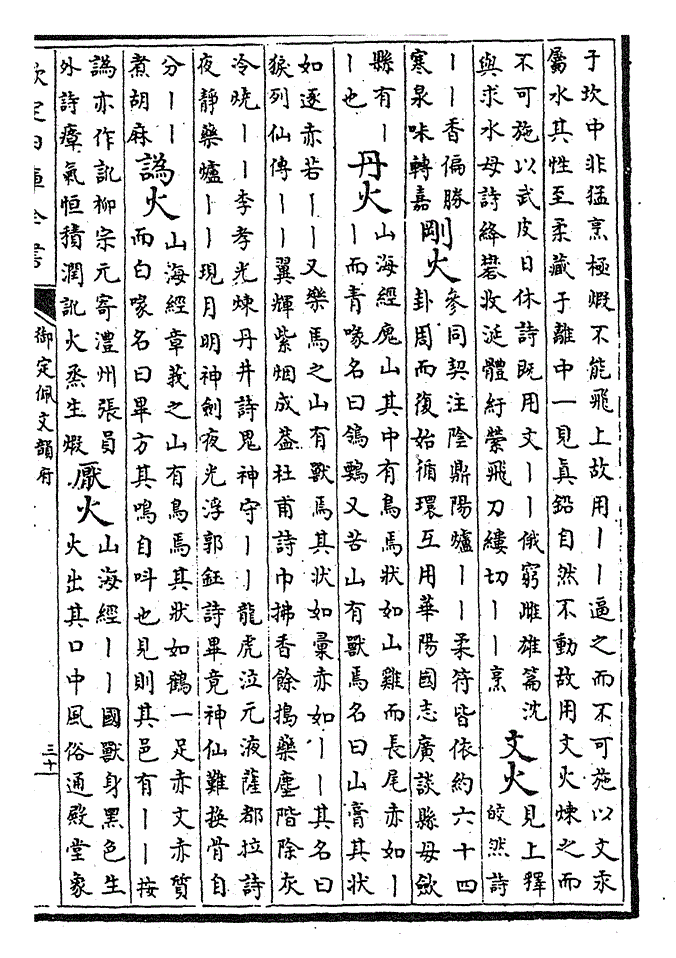 于坎中非猛烹極煅不能飛上故用丨丨逼之而不可施以文汞
屬水其性至柔藏于離中一見真鉛自然不動故用文火煉之而
不可施以武皮日休詩既用文丨丨俄窮雌雄篇沈
與求水母詩絳礬收涎體紆縈飛刀縷切丨丨烹
文火
見上釋
皎然詩
丨丨香偏勝
寒泉味轉嘉
剛火
參同契注陰鼎陽爐丨丨柔符皆依約六十四
卦周而復始循環互用華陽國志廣談縣毋歛
縣有丨
丨也
丹火
山海經廆山其中有鳥焉狀如山雞而長尾赤如丨
丨而青喙名曰鴒䴅又苦山有獸焉名曰山膏其狀
如逐赤若丨丨又樂馬之山有獸焉其狀如彙赤如丨丨其名曰
𤟤列仙傳丨丨翼輝紫烟成葢杜甫詩巾拂香餘搗藥塵階除灰
冷燒丨丨李孝光煉丹井詩鬼神守丨丨龍虎泣元液薩都拉詩
夜靜藥爐丨丨現月明神劍夜光浮郭鈺詩畢竟神仙難換骨自
分丨丨
煮胡麻
譌火
山海經章莪之山有鳥焉其狀如鶴一足赤文赤質
而白喙名曰畢方其鳴自叫也見則其邑有丨丨按
譌亦作訛柳宗元寄澧州張員
外詩瘴氣恒積潤訛火亟生煅
厭火
山海經丨丨國獸身黑色生
火出其口中風俗通殿堂象
欽定四庫全書
御定佩文韻府
三十